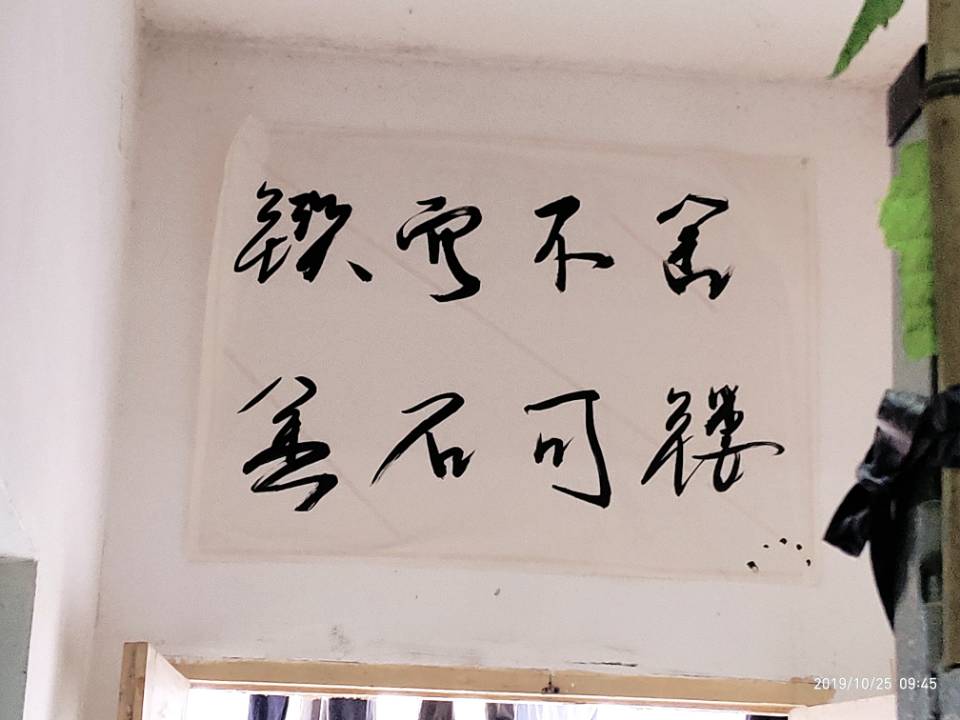 锲而不舍
金石可镂
2019/10/25 09:45